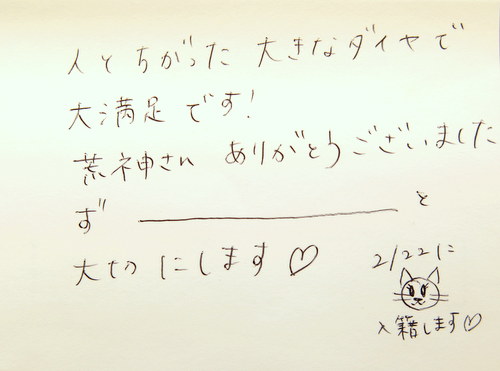 人とちがった 大きなダイヤで
大満足です!
荒神さん ありがとうございました
ず――――――っと
大切にします♡
2/22に
入籍します♡